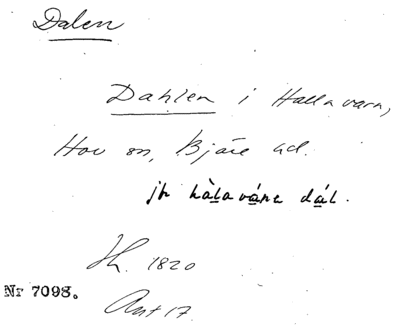 Dalen
Dahlen i Hallavara,
Hov sn, Bjäre hd.
jfr hàlaváne dál.
1820
Nr 7098.
Ant 17